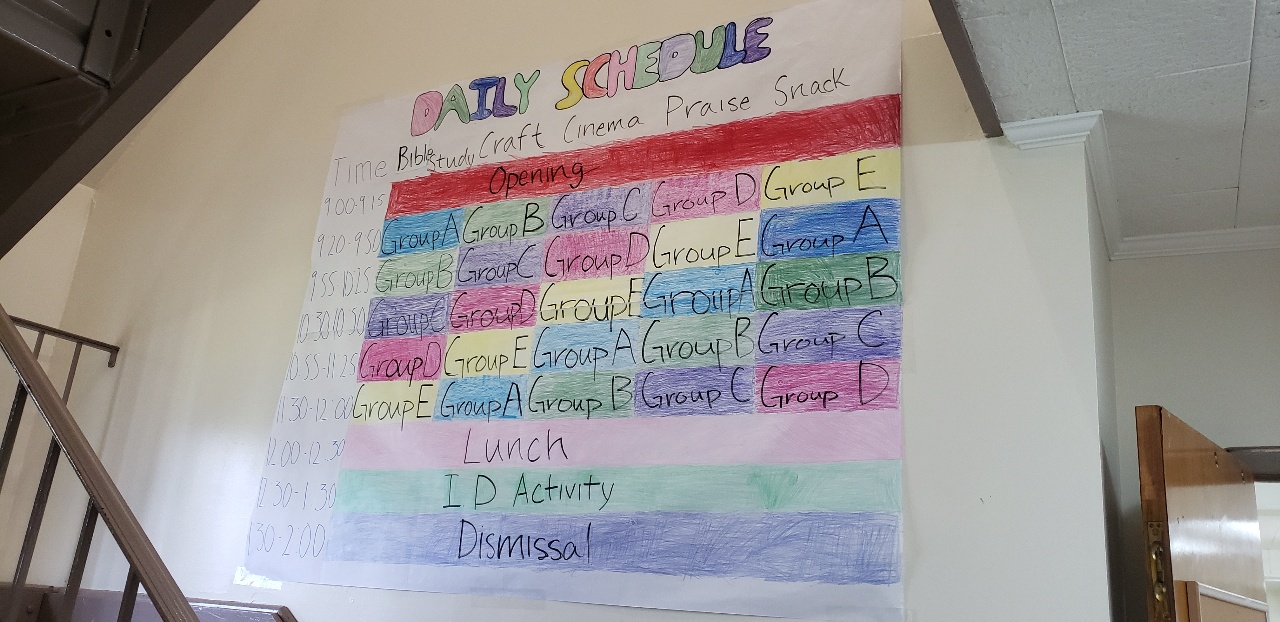 DAILY SCHEDULE
Time Bible Study Craft Cinema Praise Snack
9:00-9:15 Opening
9:20-9:50 Group A Group B Group C Group D Group E
9:55-10:25 Group B Group C Group D Group E Group A
Group C Group D Group E Group A Group B
10:55-11:25 Group D Group E Group A Group B Group C
11:30-12:00 Group E Group A Group B Group C Group D
12:00-12:30 Lunch
12:30-1:30 I D Activity
1:30-2:00 Dismissal